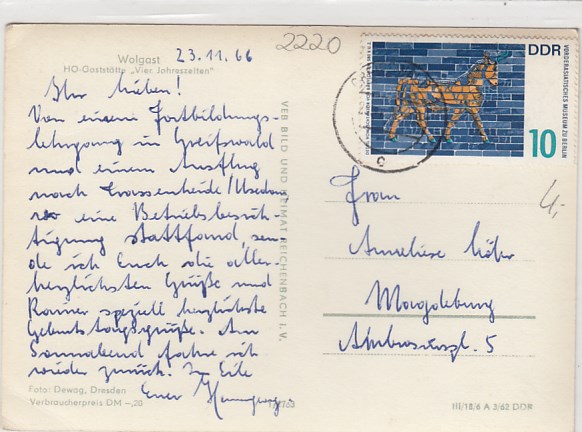 Wolgast
23.11.66
2220
HO-Gaststätte „Vier Jahreszeiten"
Ihr Lieben!
Von einem Fortbildungs-
lehrgang in Greifswald
und einem Ausflug
nach Trassenheide/Usedom
wo eine Betriebsbesich-
tigung stattfand, sen-
de ich Euch die aller-
herzlichsten Grüße und
Rainer speziell herzlichste
Geburtstagsgrüße. Am
Sonnabend fahre ich
wieder zurück. In Eile
Euer
Foto: Dewag, Dresden
Verbraucherpreis DM -,20
VEB BILD UND HEIMAT REICHENBACH I. V.
DDR
VORDERASIATISCHES MUSEUM ZU BERLIN
10
Frau
Anneliese
Magdeburg
Ambrosiuspl. 5
III/18/6 A 3/62 DDR